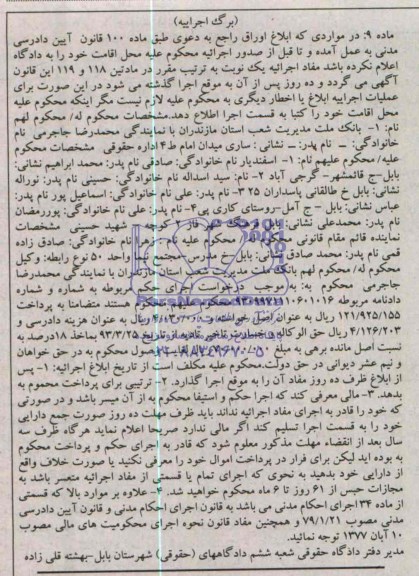 (برگ اجراییه)
ماده ۹: در مواردی که ابلاغ اوراق راجع به دعوی طبق ماده ۱۰۰ قانون آیین دادرسی
مدنی به عمل آمده و تا قبل از صدور اجرائیه محکوم علیه محل اقامت خود را به دادگاه
اعلام نکرده باشد مفاد اجرائیه یک نوبت به ترتیب مقرر در مادتین ۱۱۸ و ۱۱۹ این قانون
آگهی می گردد و ده روز پس از آن به موقع اجرا گذشته می شود در این صورت برای
عملیات اجراییه ابلاغ یا اخطار دیگری به محکوم علیه لازم نیست مگر اینکه محکوم علیه
محل اقامت خود را کتبا به قسمت اجرا اطلاع دهد.مشخصات محکوم له/ محکوم لهم
نام: ۱- بانک ملت مدیریت شعب استان مازندران با نمایندگی محمدرضا جاجرمی نام
خانوادگی: ــ نام پدر: ــ نشانی: ساری میدان امام ط۴ اداره حقوقی مشخصات محکوم
علیه/ محکوم علیهم نام: ۱- اسفندیار نام خانوادگی: صادقی نام پدر: محمد ابراهیم نشانی:
بابل-ج قائمشهر- گرجی آباد ۲- نام: سید اسداله نام خانوادگی: حسینی نام پدر: نوراله
نشانی: بابل خ طالقانی پاسداران ۲۵ ۳- نام پدر: علی نام خانوادگی: اسماعیل پور نام پدر:
عباس نشانی: بابل - ج آمل-روستای کاری پی ۴- نام پدر: علی نام خانوادگی: پوررمضان
نام پدر: محمدعلی نشانی: بابل شهید حسینی مشخصات
نماینده قائم مقام قانونی محکوم له/ محکوم علیه نام: زهرا نام خانوادگی: صادق زاده
قمی نام پدر: محمد صادق نشانی: بابل-خ مدرس-مجتمع نیما واحد ۵۰ نوع رابطه: وکیل
محکوم له/ محکوم لهم بانک ملت مدیریت شعب استان مازندران با نمایندگی محمدرضا
جاجرمی محکوم به: به موجب درخواست اجرای حکم مربوطه به شماره و شماره
دادنامه مربوطه محکوم علیهم محکوم هستند متضامنا به پرداخت
۱۲۱/۹۲۵/۱۵۵ ریال به عنوان اصل خواسته و ریال به عنوان هزینه دادرسی و
۴/۱۲۶/۲۰۳ ریال حق الوکاله و خسارت تاخیر تادیه از تاریخ ۹۳/۳/۲۵ بماخذ ۱۸درصد به
نسبت اصل مانده برهی به مبلغ وصول محکوم به در حق خواهان
و نیم عشر دیوانی در حق دولت.محکوم علیه مکلف است از تاریخ ابلاغ اجرائیه: ۱- پس
از ابلاغ ظرف ده روز مفاد آن را به موقع اجرا گذارد. ۲- ترتیبی برای پرداخت محموم به
بدهد. ۳- مالی معرفی کند که اجرا حکم و استیفا محکوم به از آن میسر باشد و در صورتی
که خود را قادر به اجرای مفاد اجرائیه نداند باید ظرف مهلت ده روز صورت جمع دارایی
خود را به قسمت اجرا تسلیم کند اگر مالی ندارد صریحا اعلام نماید هرگاه ظرف سه
سال بعد از انقضاء مهلت مذکور معلوم شود که قادر به اجرای حکم و پرداخت محکوم
به بوده اید لیکن برای فرار در پرداخت اموال خود را معرفی نکنید یا صورت خلاف واقع
از دارایی خود بدهید به نحوی که اجرای تمام یا قسمتی از مفاد اجرائیه متعسر باشد به
مجازات حبس از ۶۱ روز تا ۶ ماه محکوم خواهید شد. ۴- علاوه بر موارد بالا که قسمتی
از ماده ۳۴ اجرای احکام مدنی می باشد به قانون اجرای احکام مدنی و قانون آیین دادرسی
مدنی مصوب ۷۹/۱/۲۱ و همچنین مفاد قانون نحوه اجرای محکومیت های مالی مصوب
۱۰ آبان ۱۳۷۷ توجه نمائید.
مدیر دفتر دادگاه حقوقی شعبه ششم دادگاههای (حقوقی) شهرستان بابل-بهشته قلی زاده